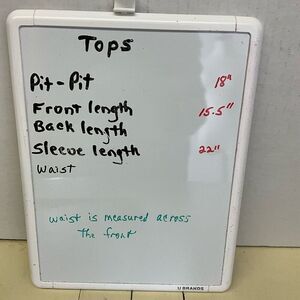 Tops
Pit-Pit 18"
Front length 15.5"
Back length
Sleeve length 22"
Waist
waist is measured across
the front
U BRANDS